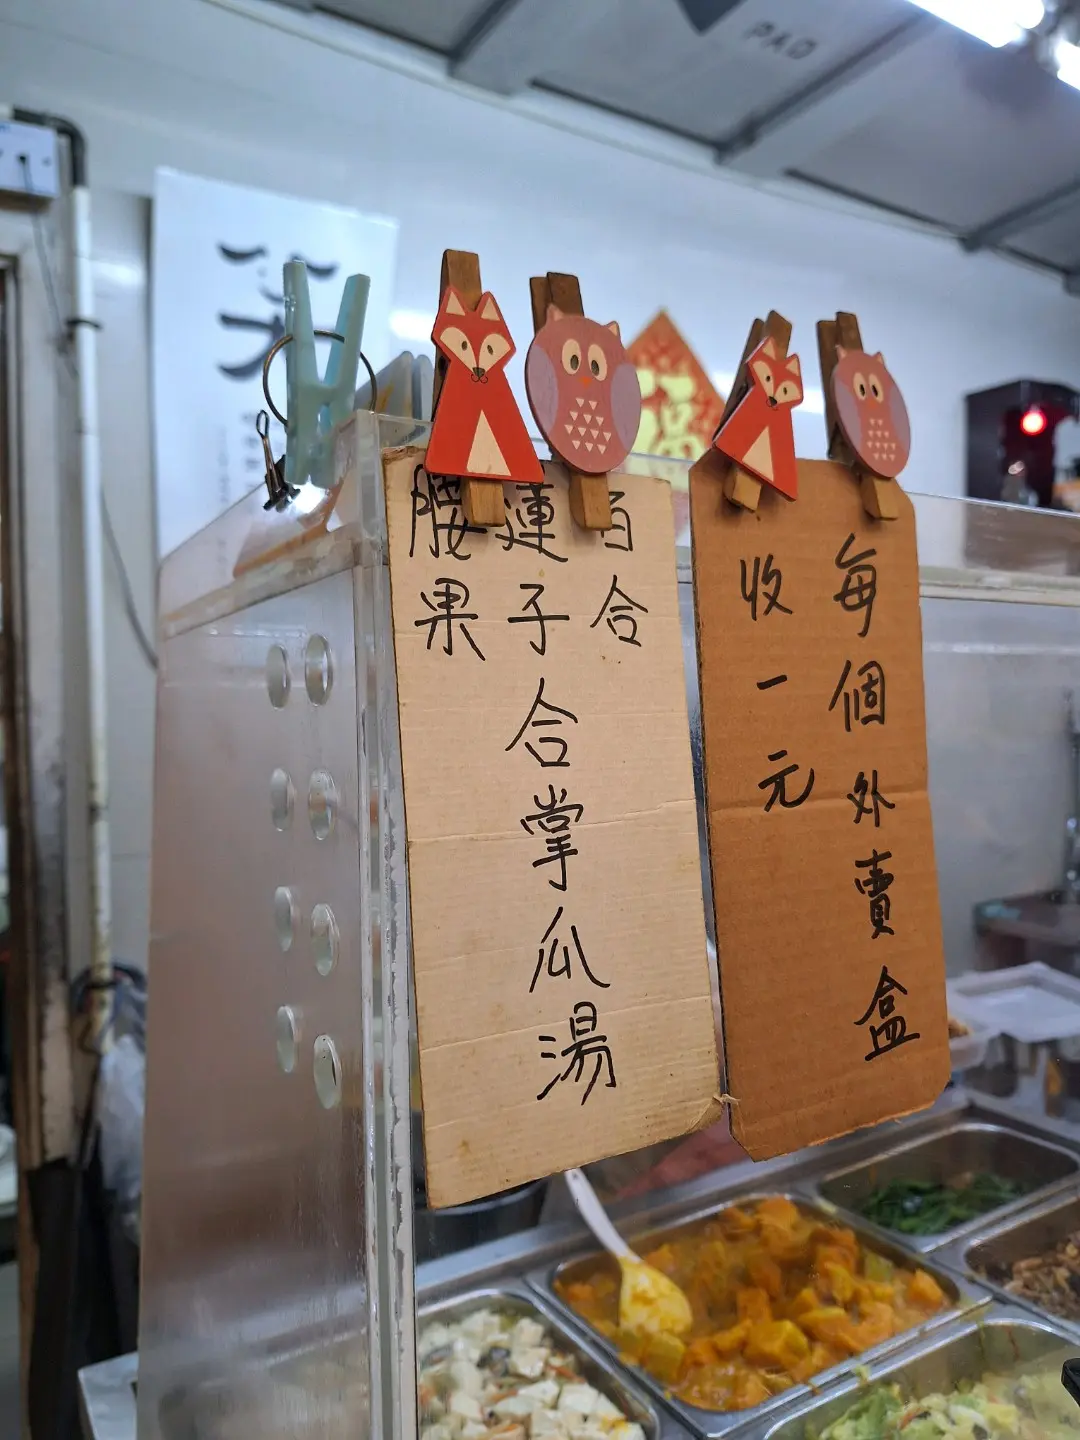 PAD
福
百合
蓮子合掌瓜湯
腰果
每個外賣盒
收一元